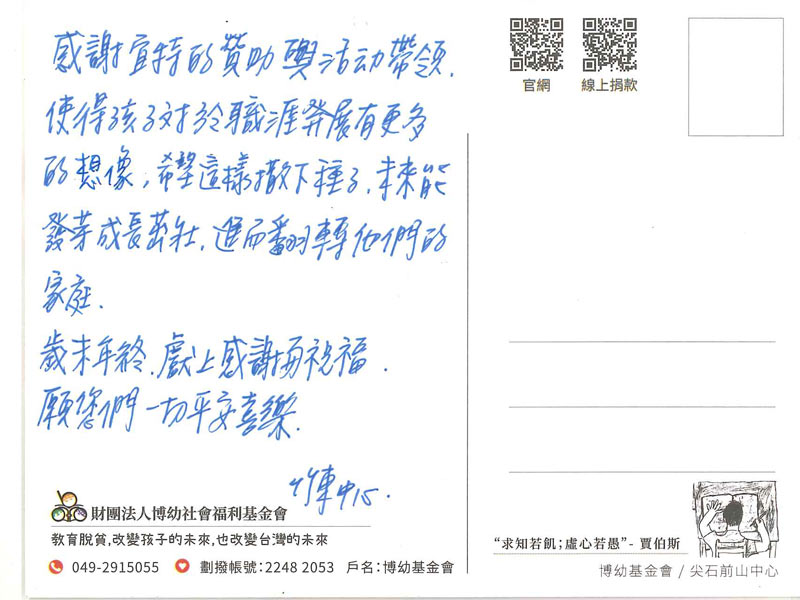 感謝宜特的贊助與活动帶領.
使得孩子对於職涯發展有更多
的想像,希望這樣撒下種子,未來能
發芽成長茁壯,進而翻轉他們的
家庭.
歲末年終,獻上感謝與祝福.
願您們一切平安喜樂.
竹東中心.
財團法人博幼社會福利基金會
教育脫貧,改變孩子的未來,也改變台灣的未來
049-2915055 劃撥帳號:2248 2053 戶名:博幼基金會
官網 線上捐款
“求知若飢;虛心若愚”- 賈伯斯
博幼基金會 / 尖石前山中心